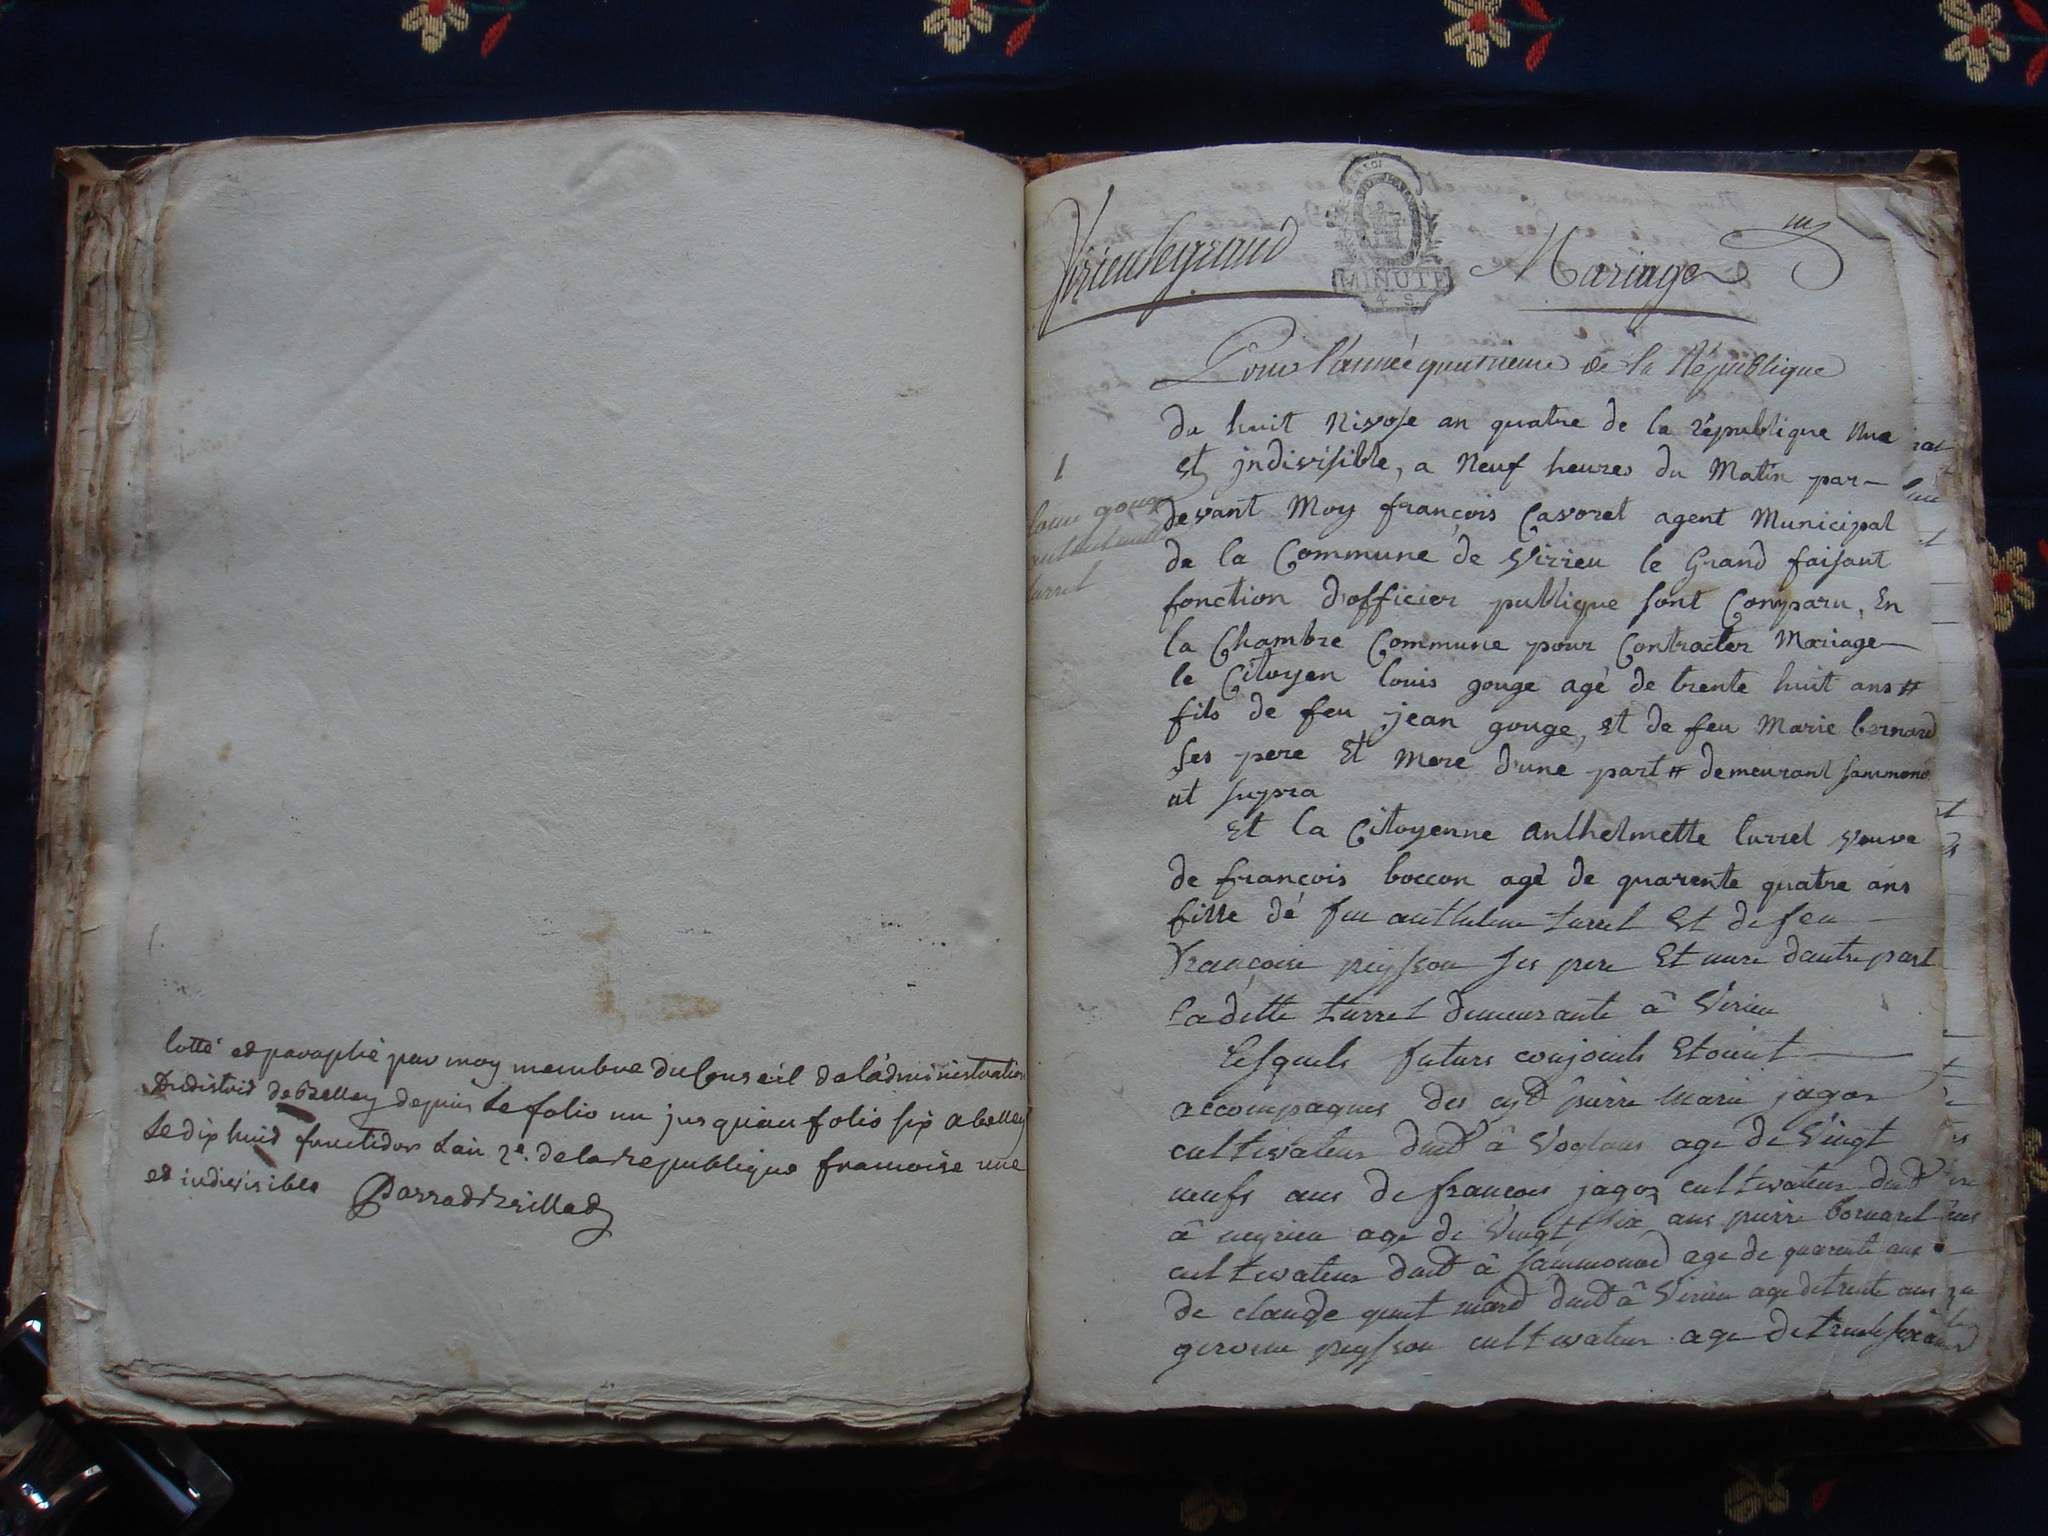 Cotté et paraphé par moy membre du Conseil de l'administration
du district de Belley depuis le folio un jusqu'au folio six a belley
le dix huit fructidor L'an 2e. de la republique francoise une
et indivisibles
Virieu le grand
MINUTE
4 S.
Mariage
Pour l'année quatrieme de la République
1
louis gouge
turrel
du huit Nivose an quatre de la République une
et jndivisible, a Neuf heures du Matin par-
devant Moy françois Cavoret agent Municipal
de la Commune de Virieu le Grand faisant
fonction d'officier publique sont Comparu, En
la Chambre Commune pour Contracter Mariage
le Citoyen louis gouge agé de trente huit ans #
fils de feu jean gouge, et de feu Marie bernard
ses pere Et Mere d'une part # demeurant sammono
ut supra
Et la Citoyenne anthelmette turrel veuve
de françois boccon agé de quarente quatre ans
fille dé feu anthelme turrel Et de feu
françoise peysson ses pere Et mere d'autre part
la ditte turrel demeurante â Virieu
lesquels futurs conjoints Etoient
accompagnes des cyd pierre marie jagor
cultivateur dud â Voglans age de Vingt
neufs ans de françois jagoz cultivateur dud
â ceyrieu age de Vingt six ans pierre bornarel
cultivateur dud â sammonod age de quarente ans
de claude quet mard dud â Virieu age de trente ans
gerome peysson cultivateur age de trente six ans